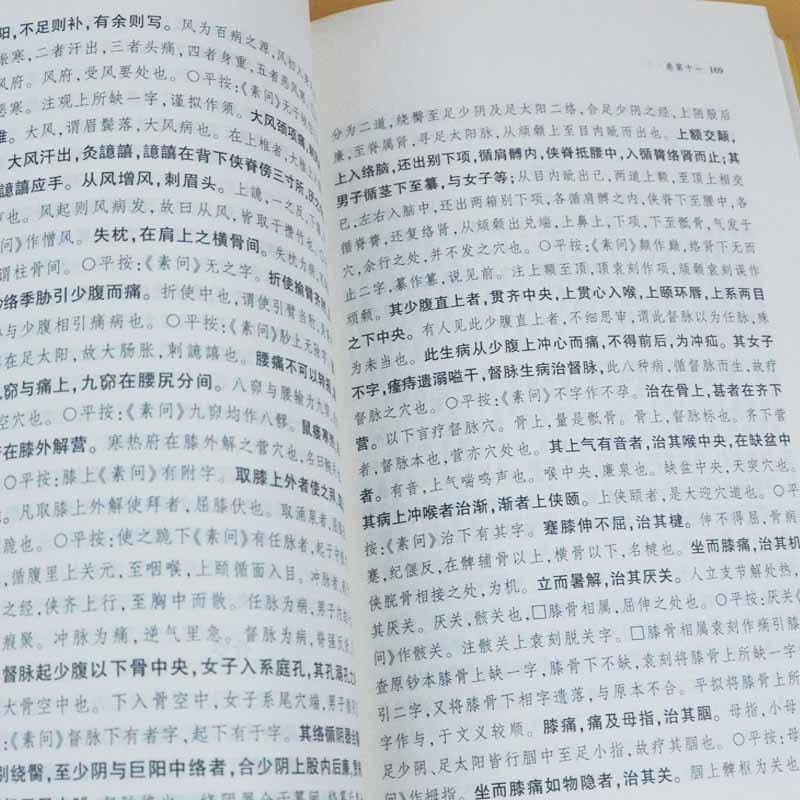 阳，不足则补，有余则写。风为百病之源，风初入
振寒，二者汗出，三者头痛，四者身重，五者恶风寒
风府。风府，受风要处也。〇平按：《素问》无于
恶寒。注观上所缺一字，谨拟作须。大风颈项痛，刺
椎。大风，谓眉鬓落，大风病也。在上椎者，大椎上
大风汗出，灸譩譆，譩譆在背下侠脊傍三寸所，厌之
譩譆应手。从风增风，刺眉头。上譩，一之反，下
也。风起则风病发，故曰从风，皆取于攒竹也。〇
问》作憎风。失枕，在肩上之横骨间。失枕为病
谓柱骨间。〇平按：《素问》无之字。折使揄臂齐肘
眇络季胁引少腹而痛。折使中也，谓使引臂当肘
与少腹相引痛病也。〇平按：《素问》眇上无
在足太阳，故大肠胀，刺譩譆也。腰痛不可以转摇
九窌与痛上，九窌在腰尻分间。八窌与腰输为九窌
空穴也。〇平按：《素问》九窌均作八髎。鼠瘘寒热
在膝外解营。寒热府在膝外解之营穴也，名曰
〇平按：膝上《素问》有附字。取膝上外者使之拜
凡取膝上外解使拜者，屈膝伏也。取涌泉者，
跪也。〇平按：使之跪下《素问》有任脉者，起于中
循腹里上关元，至咽喉，上颐循面入目。冲脉者，
之经，侠齐上行，至胸中而散。任脉为病，男子
瘕聚。冲脉为痛，逆气里急。督脉为病，脊强反
督脉起少腹以下骨中央，女子入系庭孔，其孔溺孔之
大骨空中也。下入骨空中，女子系尾穴端，男子循
《素问》督脉下有者字，起下有于字。其络循阴器合
别绕臀，至少阴与巨阳中络者，合少阴上股内后廉，贯
卷第十一 169
分为二道，绕臀至足少阴及足太阳二络，合足少阴之经，上阴股后
廉，至脊属肾，寻足太阳脉，从颃颡上至目内眦而出也。上额交颠，
上入络脑，还出别下项，循肩髆内，侠脊抵腰中，入循膂络肾而止；其
男子循茎下至纂，与女子等；从目内眦出已，两道上额，至顶上相交
已，左右入脑中，还出两箱别下项，各循肩髆之内，侠脊下至腰中，各
循脊膂，还复络肾，从颃颡出兑端，上鼻上，下项，下至骶骨，气发于
穴，余行之处，并不发之穴也。〇平按：《素问》颠作巅，络肾下无而
止二字，纂作篡，说见前。注上额至顶，顶袁刻作项，颃颡袁刻误作
顽颡。其少腹直上者，贯齐中央，上贯心入喉，上颐环唇，上系两目
之下中央。有人见此少腹直上者，不细思审，谓此督脉以为任脉，殊
为未当也。此生病从少腹上冲心而痛，不得前后，为冲疝。其女子
不字，癃痔遗溺嗌干，督脉生病治督脉，此八种病，循督脉而生，故疗
督脉之穴也。〇平按：《素问》不字作不孕。治在骨上，甚者在齐下
营。以下言疗督脉穴。骨上，量是骶骨。骨上，督脉标也。齐下营
者，督脉本也，营亦穴处也。其上气有音者，治其喉中央，在缺盆中
者。有音，上气喘鸣声也。喉中央，廉泉也。缺盆中央，天突穴也。
其病上冲喉者治渐，渐者上侠颐。上侠颐者，是大迎穴道也。〇平
按：《素问》治下有其字。蹇膝伸不屈，治其楗。伸不得屈，骨病
蹇，纪偃反，在髀辅骨以上，横骨以下，名楗也。坐而膝痛，治其机
侠脘骨相接之处，为机。立而暑解，治其厌关。人立支节解处热，
其厌关。厌关，骸关也，□膝骨相属，屈伸之处也。〇平按：厌关《
问》作骸关。注骸关上袁刻脱关字。□膝骨相属袁刻作痛引膝骨
查原钞本膝骨上缺一字，膝骨下不缺，袁刻将膝骨上所缺一字
引二字，又将膝骨下相字遗落，与原本不合。平拟将膝骨上所
字作与，于文义较顺。膝痛，痛及母指，治其腘。母指，小母
足少阴、足太阳皆行腘中至足小指，故疗其腘也。〇平按：母
问》作拇指。坐而膝痛如物隐者，治其关。腘上髀枢为关也